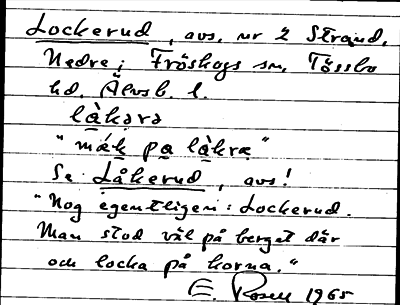 Lockerud, avs. nr 2 Strand,
Nedre i Fröskogs sn, Tössbo
hd. Älvsb. l.
làkərə
"mák pa làkrə"
Se Låkerud, avs!
"Nog egentligen: Lockerud.
Man stod väl på berget där
och locka på korna."
E. Rosell 1965